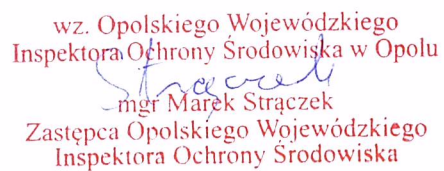 wz. Opolskiego Wojewódzkiego
Inspektora Ochrony Środowiska w Opolu
Strączek
mgr Marek Strączek
Zastępca Opolskiego Wojewódzkiego
Inspektora Ochrony Środowiska